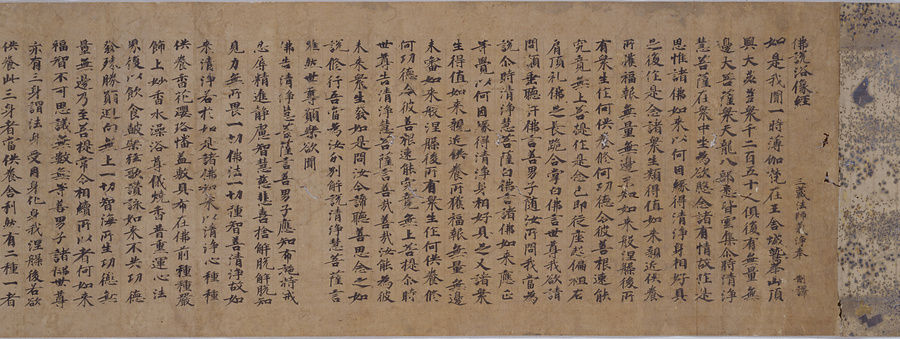 佛說浴像經
三藏法師義淨奉 制譯
如是我聞一時薄伽梵在王舍城鷲峯山頂
與大苾芻衆千二百五十人俱復有無量無
邊大菩薩衆天龍八部悉皆雲集尒時清淨
慧菩薩在衆中坐為欲愍念諸有情故作是
思惟諸佛如來以何因緣得清淨身相好具
足復作是念諸衆生類得值如來親近供養
所獲福報無量無邊未知如來般涅槃後所
有衆生作何供養修何功德令彼善根速能
究竟無上菩提作是念已即從座起偏袒右
肩頂礼佛足長跪合掌白佛言世尊我欲請
問願垂聽許佛言善男子隨汝所問我當為
說尒時清淨慧菩薩白佛言諸佛如來應正
等覺以何因緣得清淨身相好具足又諸衆
生得值如來親近供養所獲福報無量無邊
未當如來般涅槃後所有衆生作何供養修
何功德令彼善根速能究竟無上菩提尒時
世尊告清淨慧菩薩言善哉善哉汝能為彼
未來衆生發如是問汝今諦聽善思念之如
說修行吾當為汝分別解說清淨慧菩薩言
唯然世尊願樂欲聞
佛告清淨慧菩薩言善男子應知布施持戒
忍辱精進靜慮智慧慈悲喜捨解脫解脫知
見力無所畏一切佛法一切種智善清淨故如
來清淨若於如是諸佛如來以清淨心種種
供養香花瓔珞幡蓋敷具布在佛前種種嚴
飾上妙香水澡浴尊儀燒香普熏運心法
界復以飲食鼓樂絃歌讚詠如來不共功德
發殊勝願迴向無上一切智海所生功德無
量無邊乃至菩提常令相續所以者何如來
福智不可思議無數無等善男子諸佛世尊
亦有三身謂法身受用身化身我涅槃後若欲
供養此三身者當供養舍利然有二種一者